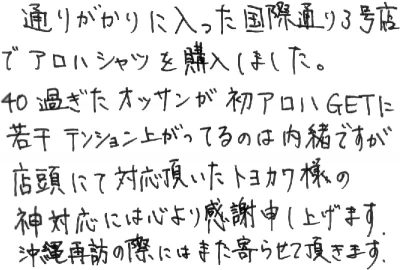 通りがかりに入った国際通り3号店
でアロハシャツを購入しました。
40過ぎたオッサンが初アロハGETに
若干テンション上がってるのは内緒ですが
店頭にて対応頂いたトヨカワ様の
神対応には心より感謝申し上げます.
沖縄再訪の際にはまた寄らせて頂きます.